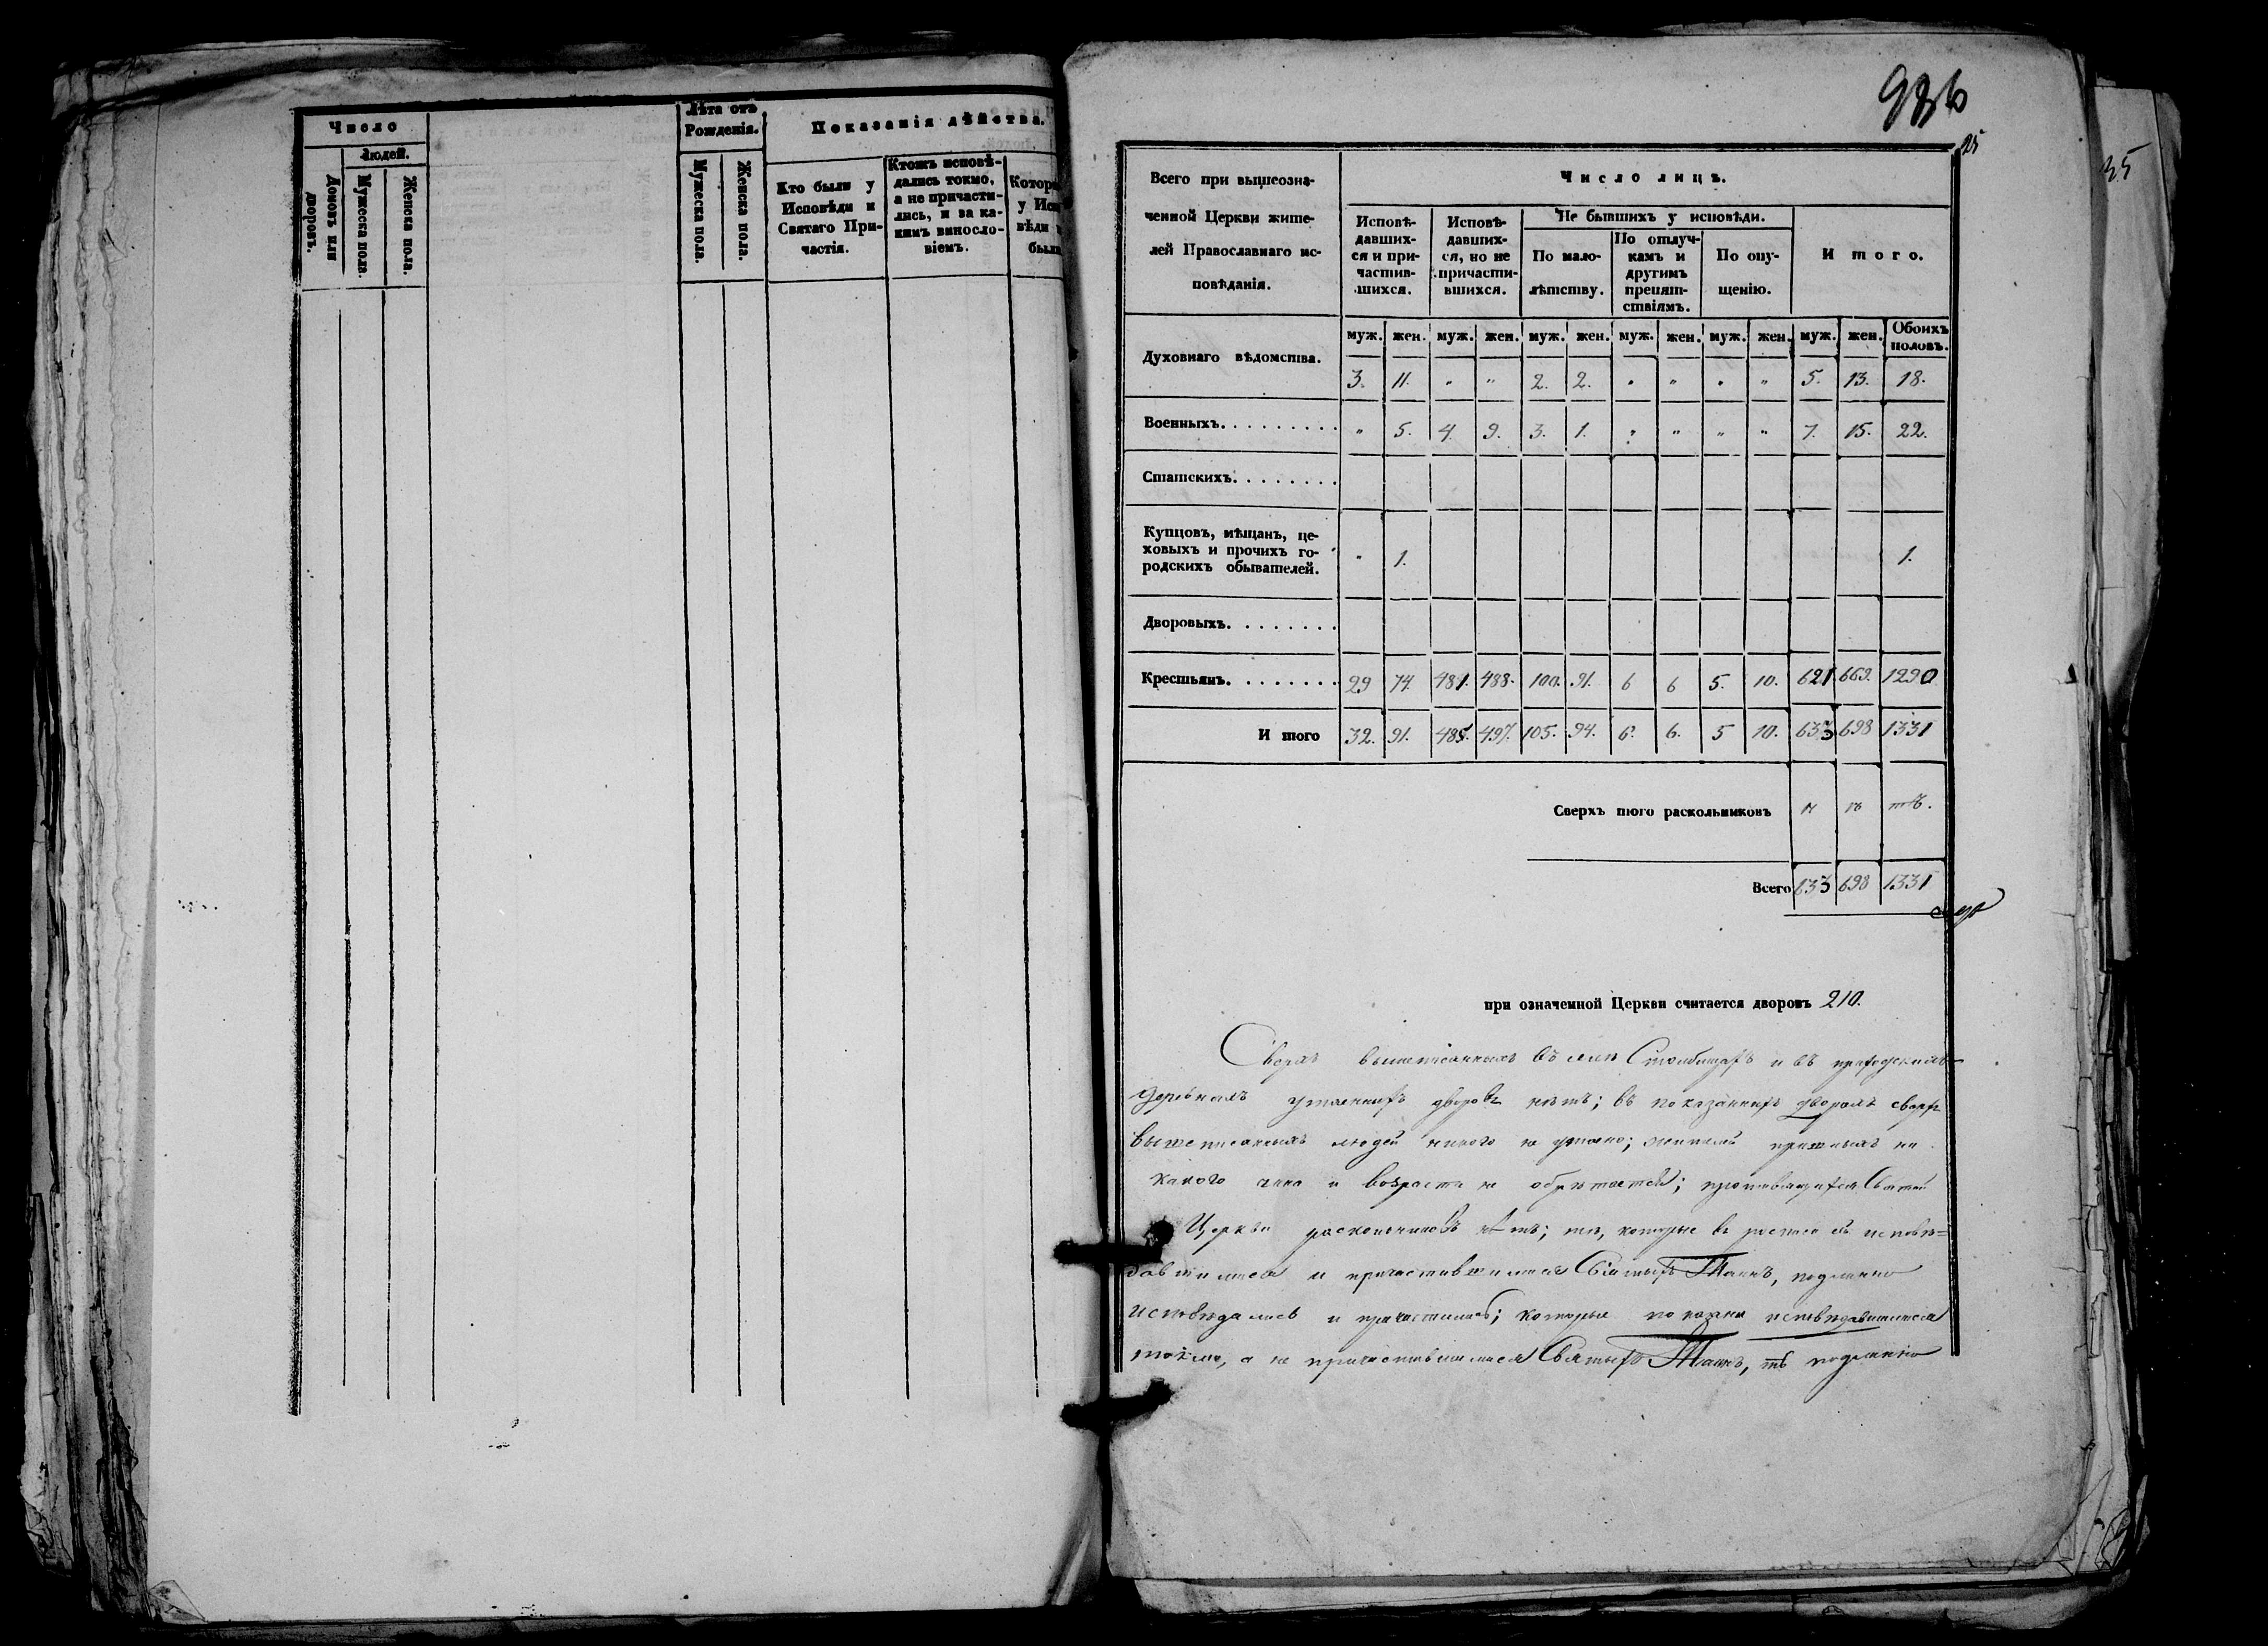 Число
Людей.
Домовъ или дворовъ.
Мужеска пола.
Женска пола.
Лѣта отъ Рожденія.
Мужеска пола.
Женска пола.
Показанія дѣйства.
Кто были у Исповѣди и Святаго Причастія.
Ктожъ исповѣ-
дались токмо,
а не причасти-
лись, и за ка-
кимъ виносло-
віемъ.
Котор
у Исп
вѣди
были
986
25
35
Всего при вышеозна-
ченной Церкви жите-
лей Православнаго ис-
повѣданія.
Число лицъ.
Исповѣ-
давших-
ся и при-
частив-
шихся.
Исповѣ-
давших-
ся, но не
причасти-
вшихся.
Не бывшихъ у исповѣди.
По мало-
лѣтству.
По отлуч-
камъ и
другимъ
препят-
ствіямъ.
По опу-
щенію.
И того.
муж. жен. муж. жен. муж. жен. муж. жен. муж. жен. муж. жен. Обоихъ половъ.
Духовнаго вѣдомства.
3. 11. " " 2. 2. " " " " 5. 13. 18.
Военныхъ. " 5. 4. 9. 3. 1. " " " " 7. 15. 22.
Статскихъ.
Купцовъ, мѣщанъ, це-
ховыхъ и прочихъ го-
родскихъ обывателей. " 1. 1.
Дворовыхъ.
Крестьянъ. 29 74. 481. 488. 100. 91. 6 6 5. 10. 621 669. 1290
И того 32. 91. 485. 497. 105. 94. 6. 6. 5 10. 633 698 1331
Сверхъ того раскольниковъ н ѣ тъ.
Всего 633 698 1331
при означенной Церкви считается дворовъ 210.
Сверхъ вышеписанныхъ въ селѣ и въ приходскихъ
деревняхъ утаенныхъ дворовъ нѣтъ; въ показанныхъ дворахъ сверхъ
вышеписанныхъ людей никого не утаено; пришлыхъ ни
какого чина и возраста не обрѣтается; противящихся Святой
Церкви раскольниковъ нѣтъ; тѣ, которые въ росписи съ исповѣ=
давшимися и причастившимися Святыхъ Таинъ, подлинно
исповѣдались и причастились; которые показаны исповѣдавшимися
токмо, а не причастившимися Святыхъ Таинъ, тѣ подлинно